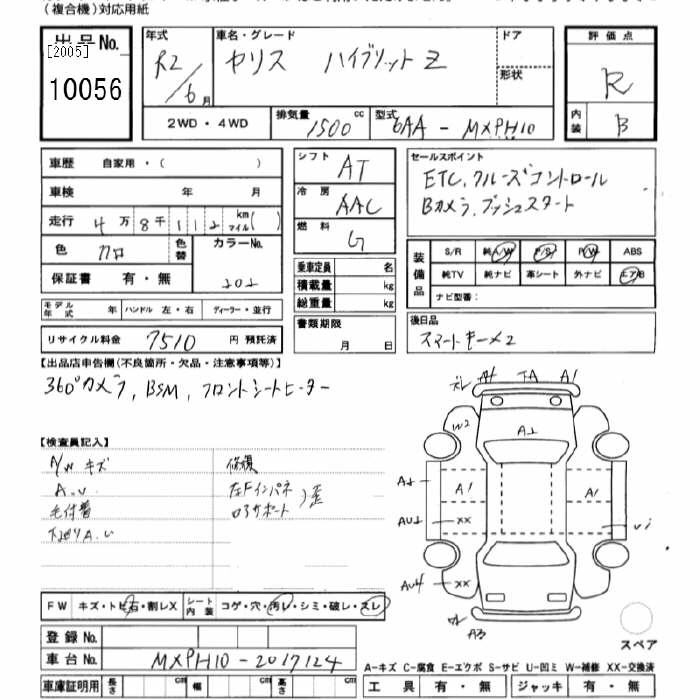 (複合機)対応用紙
出品No.
[2005]
10056
年式 R2/6月
車名・グレード ヤリス ハイブリットZ
ドア
形状
評価点 R
内装 B
2WD・4WD
排気量 1500 cc
型式 6AA-MXPH10
車歴 自家用・( )
車検 年 月
走行 4万8千112 km マイル( )
色 クロ
色替
カラーNo. 202
保証書 有・無
モデル年式 年
ハンドル 左・右
ディーラー・並行
リサイクル料金 7510 円 預託済
シフト AT
冷房 AAC
燃料 G
乗車定員 名
積載量 kg
総重量 kg
書類期限
月 日
セールスポイント
ETC, クルーズコントロール
Bカメラ, プッシュスタート
装備品
S/R 純A/W P/S P/W ABS
純TV 純ナビ 革シート 外ナビ エアB
ナビ型番:
後日品
スマートキー×2
【出品店申告欄(不良箇所・欠品・注意事項等)】
360°カメラ, BSM, フロントシートヒーター
【検査員記入】
A/W キズ
A.U
毛付着
下廻りA.U
修復
左Fインパネ
ロアサポート
)歪
ズレ A1 TA A1
W2
A1
A1
A1
AU1 ××
Ui
AU4 ××
A3
スペア
FW キズ・トビ石・割レX
シート内装 コゲ・穴・汚レ・シミ・破レ・スレ
登録No.
車台No. MXPH10-2017124
車庫証明用 長さ cm 幅 cm 高さ cm
A-キズ C-腐食 E-エクボ S-サビ U-凹ミ W-補修 XX-交換済
工具 有・無 ジャッキ 有・無